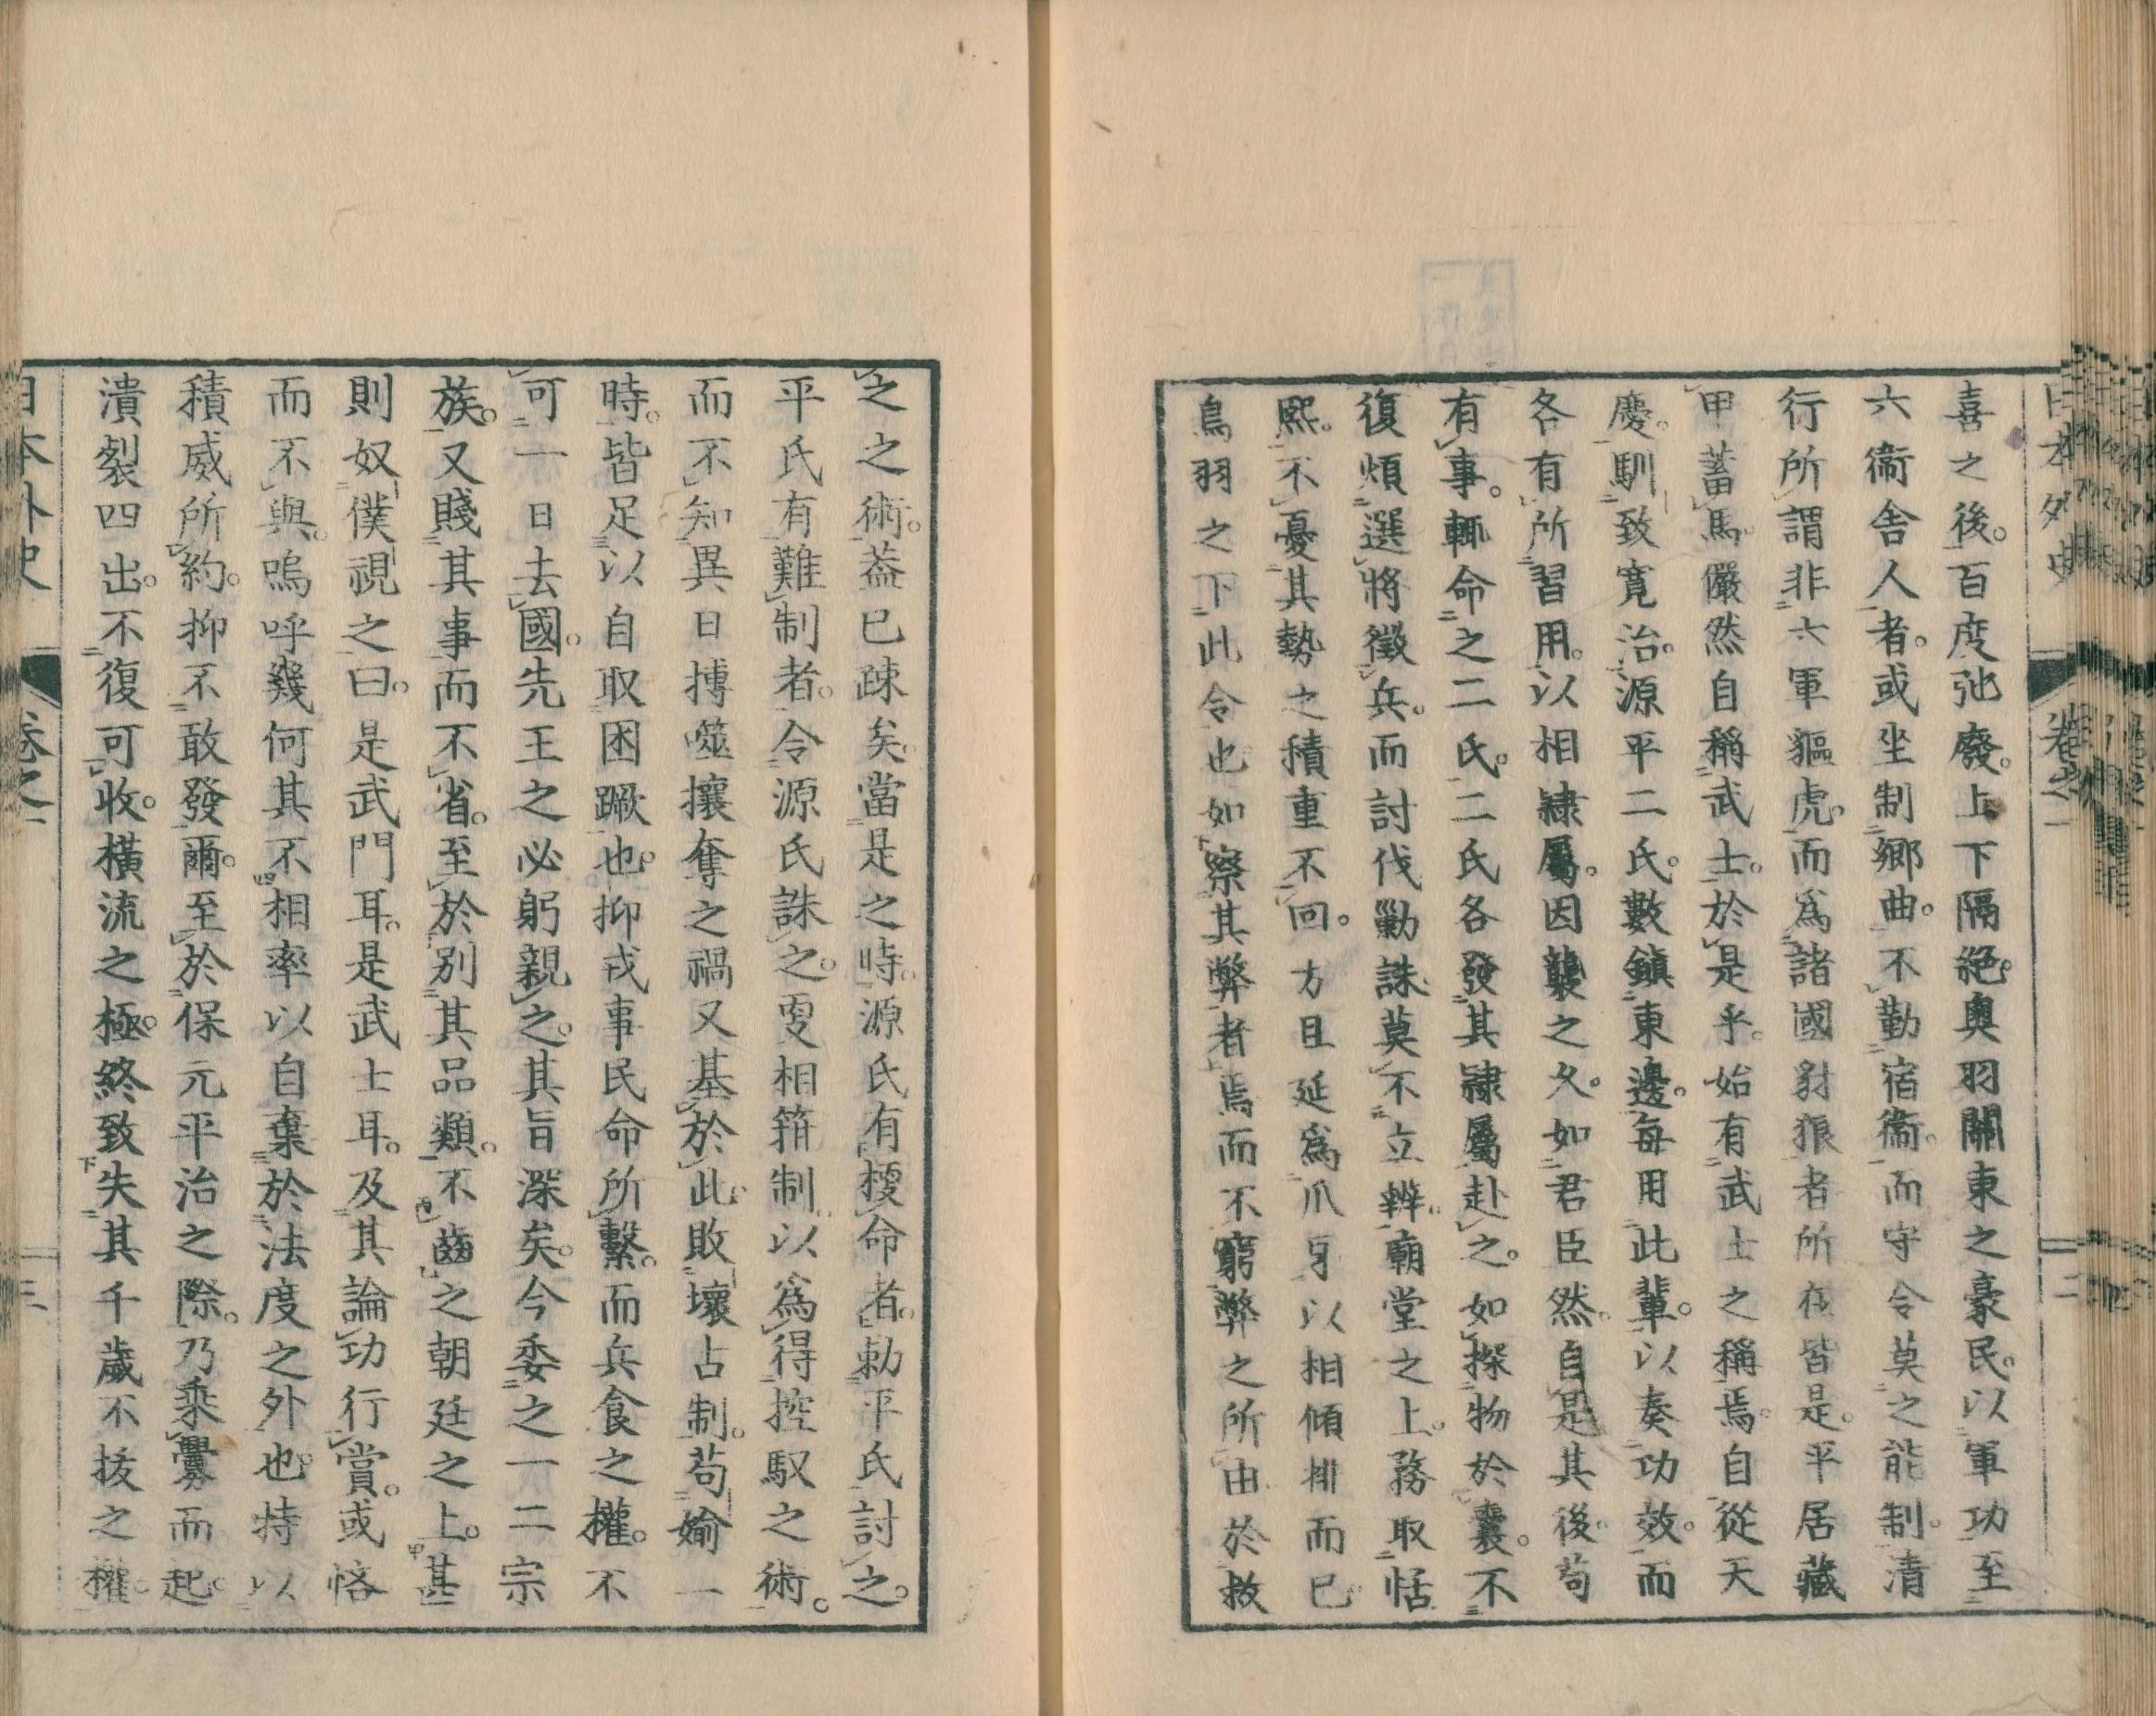 喜之後。百度弛廢。上下隔絶。奥羽關東之豪民。以軍功至
六衞舎人者。或坐制郷曲。不勤宿衞。而守令莫之能制。清
行所謂非六軍貙虎。而爲諸國豺狼者所在皆是。平居藏
甲蓄馬。儼然自稱武士。於是乎。始有武士之稱焉。自從天
慶。馴致寛治。源平二氏。數鎮東邊。毎用此輩。以奏功效。而
各有所習用。以相隷屬。因襲之久。如君臣然。自是其後。苟
有事。輒命之二氏。二氏各發其隷屬赴之。如探物於囊。不
復煩選將徴兵。而討伐勦誅莫不立辨。廟堂之上。務取恬
熙。不憂其勢之積重不回。方且延爲爪牙以相傾排而已。
鳥羽之下此令也。如察其弊者焉而不窮弊之所由於救
之之術。蓋已疎矣。當是之時。源氏有㯄命者。勅平氏討之。
平氏有難制者。令源氏誅之。更相箝制。以爲得控馭之術。
而不知異日搏噬攘奪之禍。又基於此。敗壞占制。苟媮一
時。皆足以自取困蹶也。抑戎事民命所繋。而兵食之權。不
可一日去國。先王之必躬親之。其旨深矣。今委之一二宗
族。又賤其事而不省。至於別其品類。不齒之朝廷之上。甚
則奴僕視之曰。是武門耳。是武士耳。及其論功行賞。或悋
而不與。嗚呼幾何其不相率以自棄於法度之外也。特以
積威所約。抑不敢發爾。至於保元平治之際。乃乘釁而起。
潰裂四出。不復可收。横流之極。終致失其千歳不拔之權。
日本外史 卷之一 三
日本外史 卷之一 二